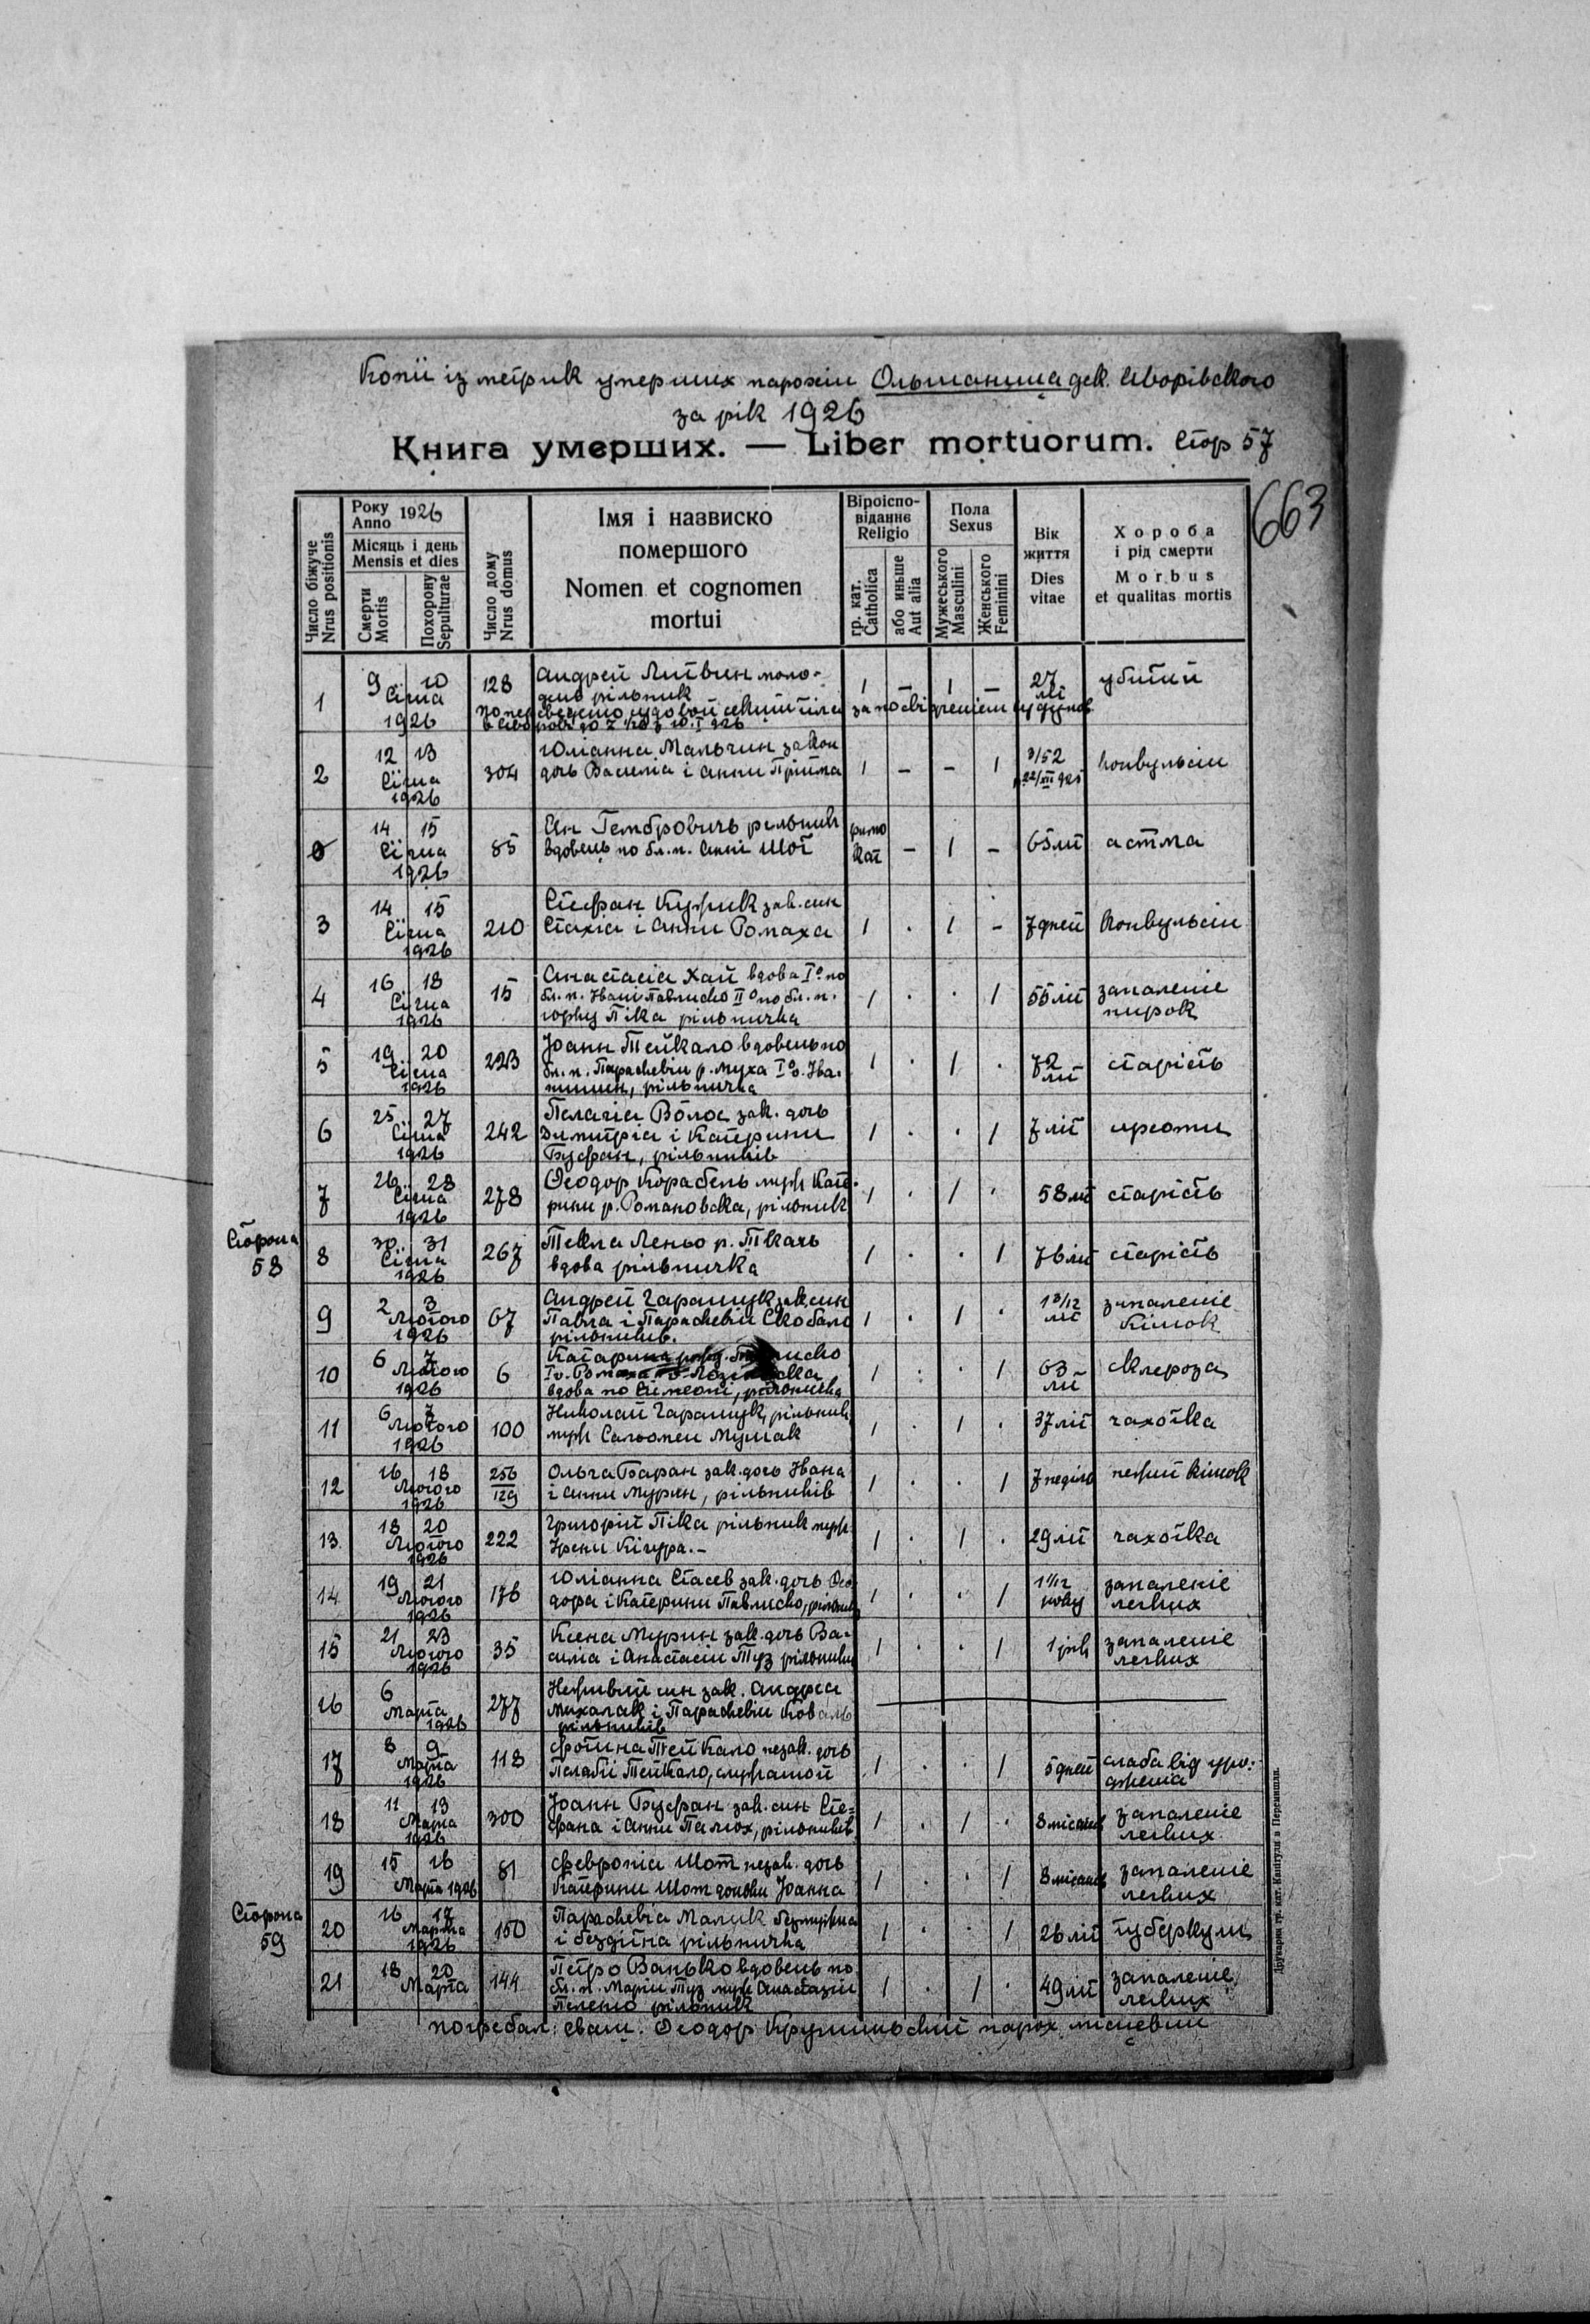 Копії із метрик умерших парохіи Ольшаница дек. Яворівского
за рік 1926
Книга умерших. — Liber mortuorum. Стор 57
663
Число біжуче
Nrus positionis
Року
Anno 1926
Місяць і день
Mensis et dies
Смерти
Mortis
Похорону
Sepulturae
Число дому
Nrus domus
Імя і назвиско
помершого
Nomen et cognomen
mortui
Віроіспо-
віданнє
Religio
гр. кат.
Catholica
або иньше
Aut alia
Пола
Sexus
Мужеського
Masculini
Женського
Feminini
Вік
життя
Dies
vitae
Хороба
і рід смерти
Morbus
et qualitas mortis
1 9 10 Січня 1926 128 Андрей Литвин моло-
дець рільник
1 – 1 – 27 літ убитий
2 12 13 Січня 1926 304 Юліанна Мальчин закон
дочь Василія і Анни Прийма 1 – – 1 3/52 конвульсіи
0 14 15 Січня 1926 85 Ян Гембровичь рільник
вдовець по бл. п. Анні Шот римо кат – 1 – 65 літ астма
3 14 15 Січня 1926 210 Стефан Кужик зак. син
Стахія і Анни Ромаха 1 . 1 – 7 дней конвульсіи
4 16 18 Січня 1926 15 Анастасія Хай вдова I° по
бл. п. Івані Павлиско II° по бл. п.
Юрку Піка рільничка 1 . . 1 55 літ запаленіе нирок
5 19 20 Січня 1926 223 Іоанн Тейкало вдовець по
бл. п. Параскевіи р. Муха I° v. Іва-
нишин, рільничка 1 . 1 . 72 літ старість
6 25 27 Січня 1926 242 Пелагія Волос зак. дочь
Димитрія і Катерини
Буфан, рільників 1 . . 1 7 літ
7 26 28 Січня 1926 278 Теодор Корабель муж Кате-
рини р. Романовска, рільник 1 . 1 . 58 літ старість
Сторона
58
8 30 31 Січня 1926 267 Текля Леньо р. Ткачь
вдова рільничка 1 . . 1 76 літ старість
9 2 3 Лютого 1926 67 Андрей Гаращук зак. син
Павла і Параскевіи Скобало
рільників. 1 . 1 . літ запаленіе кішок
10 6 7 Лютого 1926 6 Катарина
вдова по Симеоні, рільничка 1 . . 1 63 літ склероза
11 6 7 Лютого 1926 100 Николай Гаращук, рільник,
муж Сальомеи Мушак 1 . 1 . 37 літ чахотка
12 16 18 Лютого 1926 256/129 Ольга Баран зак. дочь Івана
і Анни Мурин, рільників 1 . . 1 7 неділь нежит кішок
13 18 20 Лютого 1926 222 Григорій Піка рільник муж
Ірени Кічура. – 1 . 1 . 29 літ чахотка
14 19 21 Лютого 1926 176 Юліанна Стасев зак. дочь Тео-
дора і Катерини Павлиско, рільник 1 . . 1 1 1/12 року запаленіе легких
15 21 23 Лютого 1926 35 Ксеня Мурин зак. дочь Ва-
силія і Анастасіи Туз рільники 1 . . 1 1 рік запаленіе легких
16 6 Марта 1926 277 Неживий син зак. Андрея
Михалак і Параскевіи Коваль
рільників
17 8 9 Марта 1926 118 Фотина Тейкало незак. дочь
Пелагіі Тейкало, служащой 1 . . 1 5 дней слаба від уро-
дженія
18 11 13 Марта 1926 300 Іоанн Буфан зак. син Сте-
фана і Анни Палюх, рільників 1 . 1 . 8 місяців запаленіе легких
19 15 16 Марта 1926 81 Февронія Шот незак. дочь
Катерини Шот доньки Іоанна 1 . . 1 8 місяців запаленіе легких
Сторона
59
20 16 17 Марта 1926 150 Параскевія Малик безмужна
і бездітна рільничка 1 . . 1 26 літ туберкули
21 18 20 Марта 144 Петро Ванько вдовець по
бл. п. Маріи Туз муж Анастазіи
Пелехо рільник 1 . 1 . 49 літ запаленіе легких
погребал: свящ. Теодор Крушиньскій парох місцевий
Друкарня гр. кат. Капітули в Перемишли.